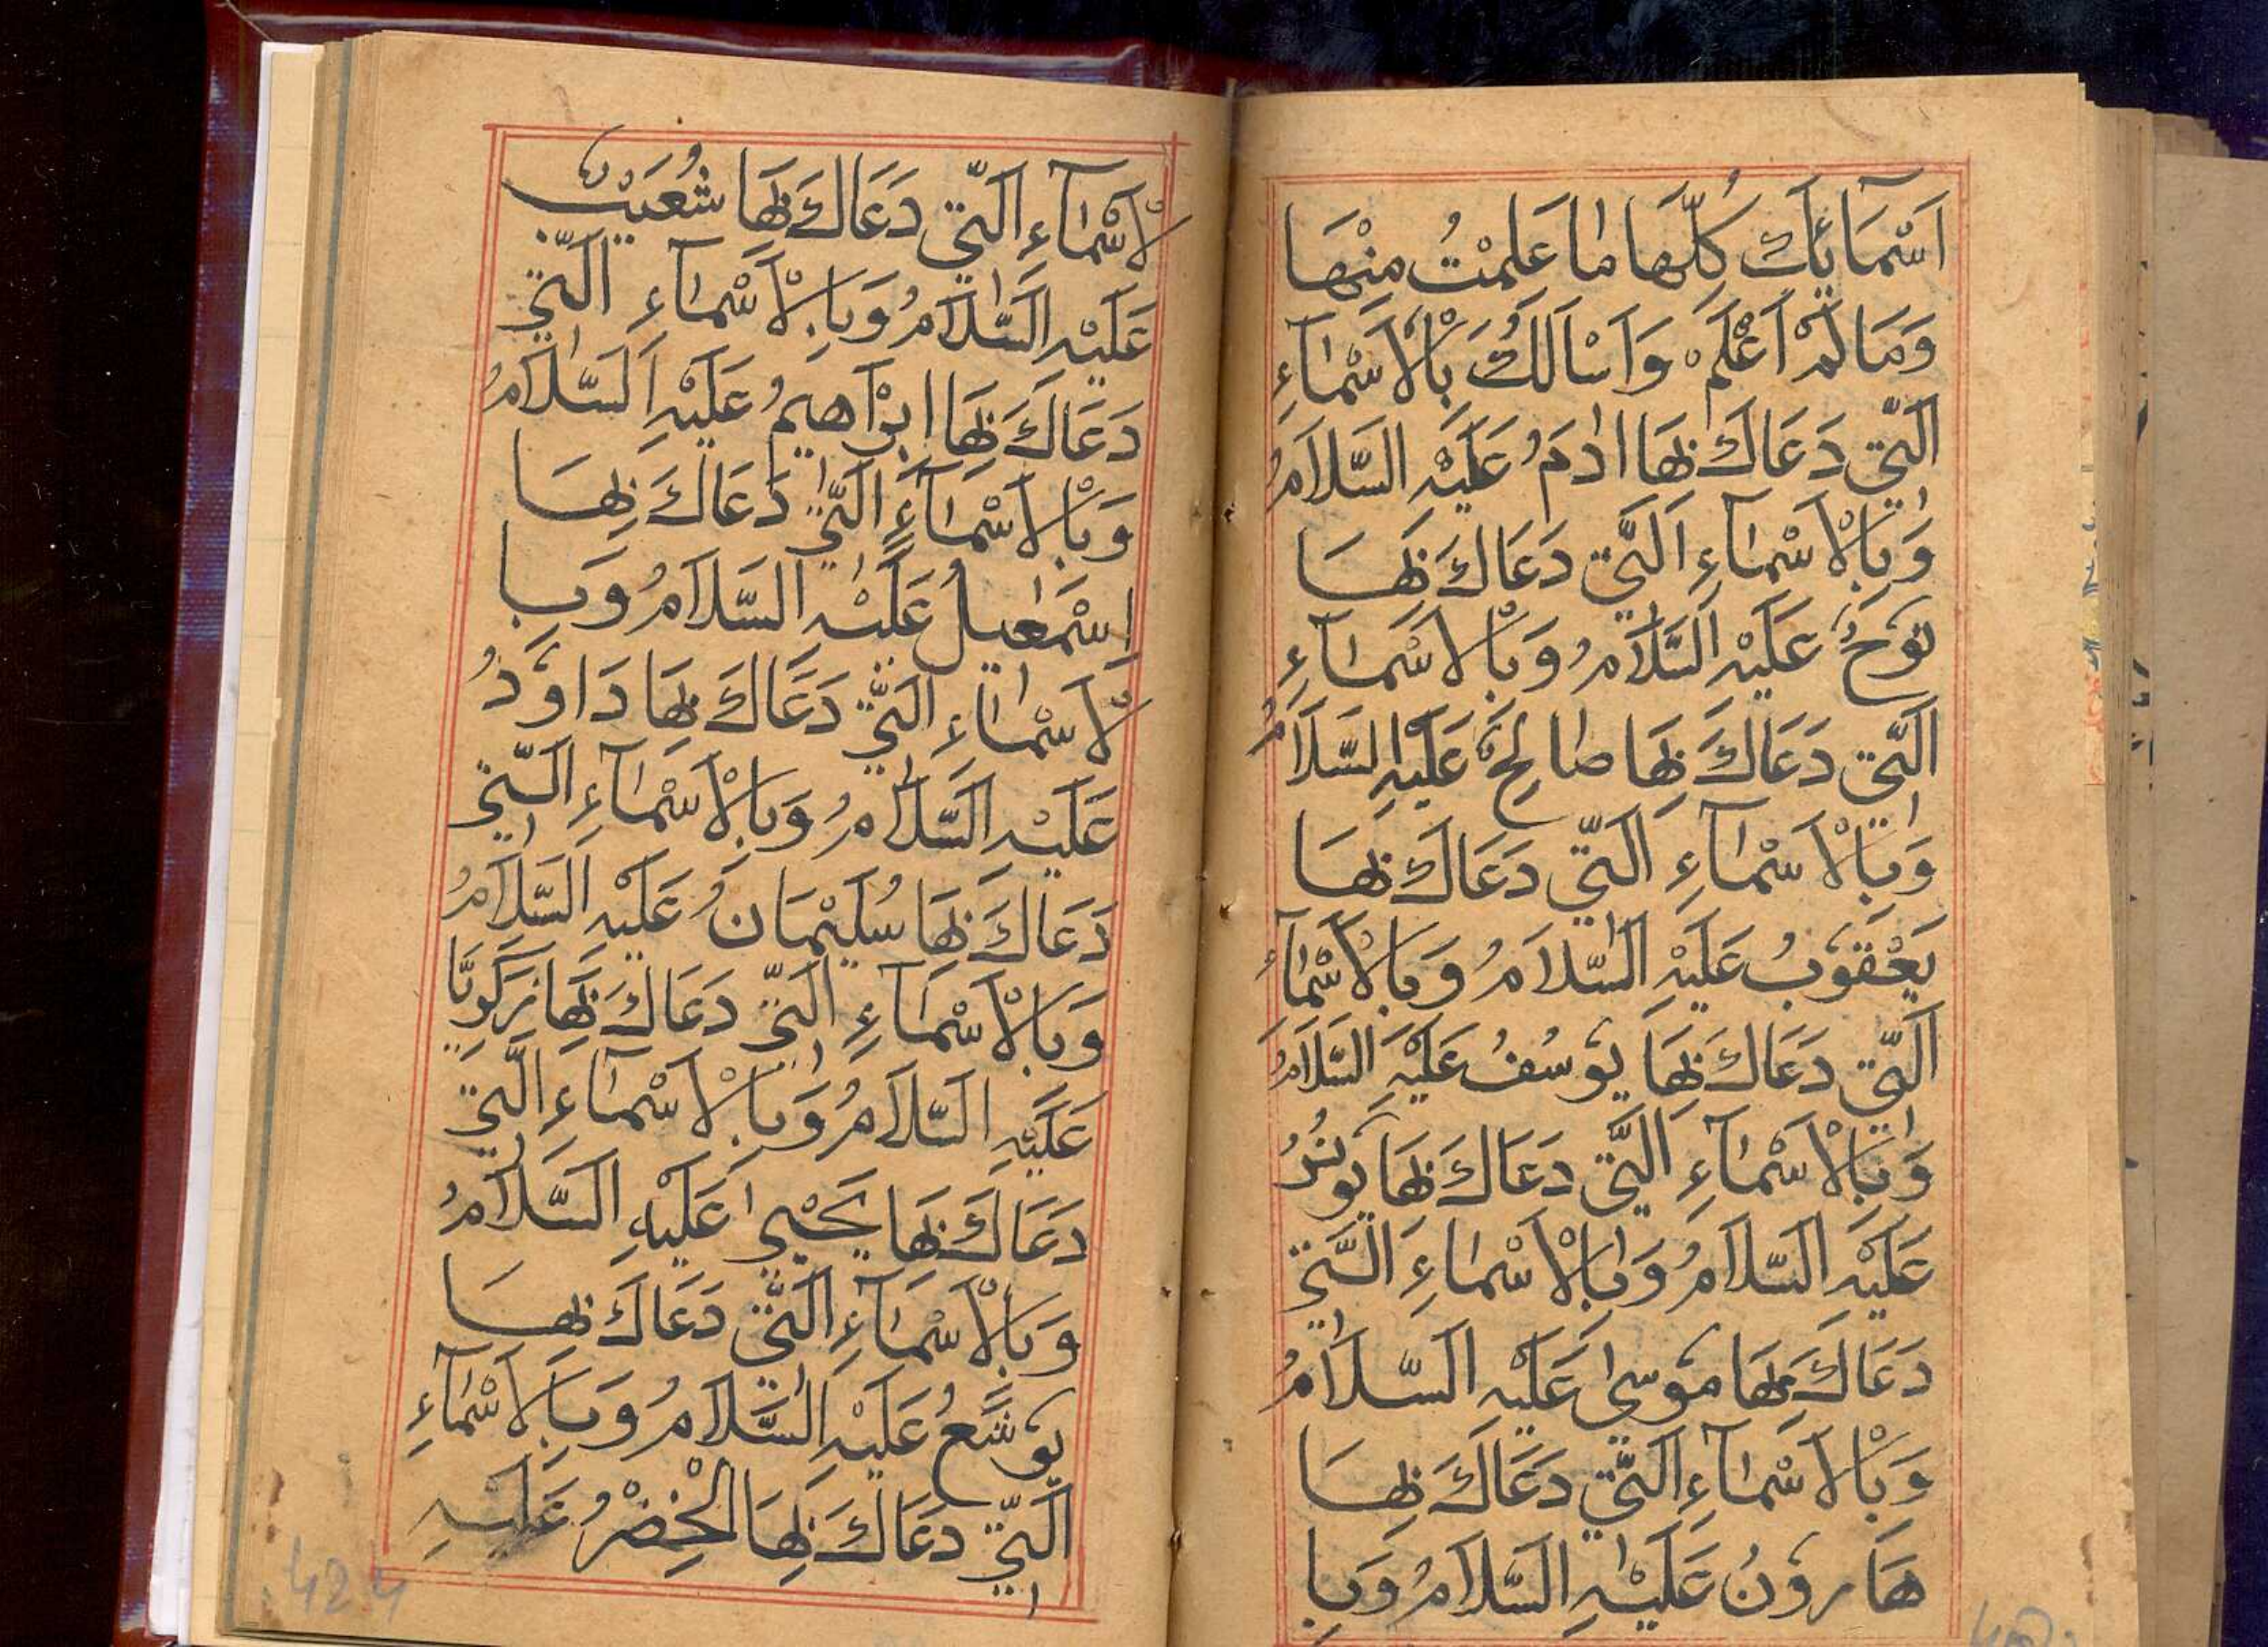 اَسْمَائِكَ كُلِّهَا مَا عَلِمْتُ مِنْهَا
وَمَا لَمْ اَعْلَمْ وَاَسْاَلُكَ بِالْاَسْمَآءِ
الَّتِى دَعَاكَ بِهَا اٰدَمُ عَلَيْهِ السَّلَامُ
وَبِالْاَسْمَآءِ الَّتِى دَعَاكَ بِهَا
نُوْحٌ عَلَيْهِ السَّلَامُ وَبِالْاَسْمَآءِ
الَّتِى دَعَاكَ بِهَا صَالِحٌ عَلَيْهِ السَّلَامُ
وَبِالْاَسْمَآءِ الَّتِى دَعَاكَ بِهَا
يَعْقُوْبُ عَلَيْهِ السَّلَامُ وَبِالْاَسْمَآءِ
الَّتِى دَعَاكَ بِهَا يُوْسُفُ عَلَيْهِ السَّلَامُ
وَبِالْاَسْمَآءِ الَّتِى دَعَاكَ بِهَا يُوْنُسُ
عَلَيْهِ السَّلَامُ وَبِالْاَسْمَآءِ الَّتِى
دَعَاكَ بِهَا مُوْسىٰ عَلَيْهِ السَّلَامُ
وَبِالْاَسْمَآءِ الَّتِى دَعَاكَ بِهَا
هَارُوْنُ عَلَيْهِ السَّلَامُ وَبِا
لْاَسْمَآءِ الَّتِى دَعَاكَ بِهَا شُعَيْبٌ
عَلَيْهِ السَّلَامُ وَبِالْاَسْمَآءِ الَّتِى
دَعَاكَ بِهَا اِبْرَاهِيْمُ عَلَيْهِ السَّلَامُ
وَبِالْاَسْمَآءِ الَّتِى دَعَاكَ بِهَا
اِسْمٰعِيْلُ عَلَيْهِ السَّلَامُ وَبِا
لْاَسْمَآءِ الَّتِى دَعَاكَ بِهَا دَاوٗدُ
عَلَيْهِ السَّلَامُ وَبِالْاَسْمَآءِ الَّتِى
دَعَاكَ بِهَا سُلَيْمَانُ عَلَيْهِ السَّلَامُ
وَبِالْاَسْمَآءِ الَّتِى دَعَاكَ بِهَا زَكَرِيَّا
عَلَيْهِ السَّلَامُ وَبِالْاَسْمَآءِ الَّتِى
دَعَاكَ بِهَا يَحْيىٰ عَلَيْهِ السَّلَامُ
وَبِالْاَسْمَآءِ الَّتِى دَعَاكَ بِهَا
يُوْشَعُ عَلَيْهِ السَّلَامُ وَبِالْاَسْمَآءِ
الَّتِى دَعَاكَ بِهَا الْخِضْرُ عَلَيْهِ